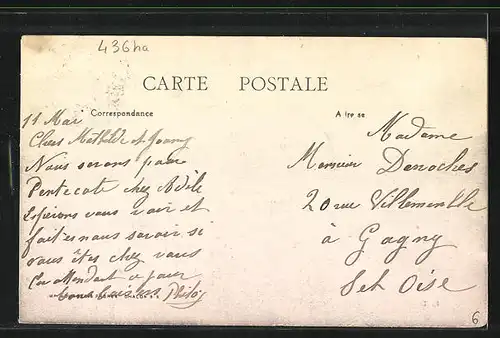 436ha
CARTE POSTALE
Correspondance
11 Mai
Chers Mathilde et
Nous serons pour
Pentecote chez Adèle
Esperons vous voir et
faites nous savoir si
vous êtes chez vous
En attendant
bons baisers
A re se
Madame
Monsieur
20 rue Villemomble
à Gagny
Set Oise
6